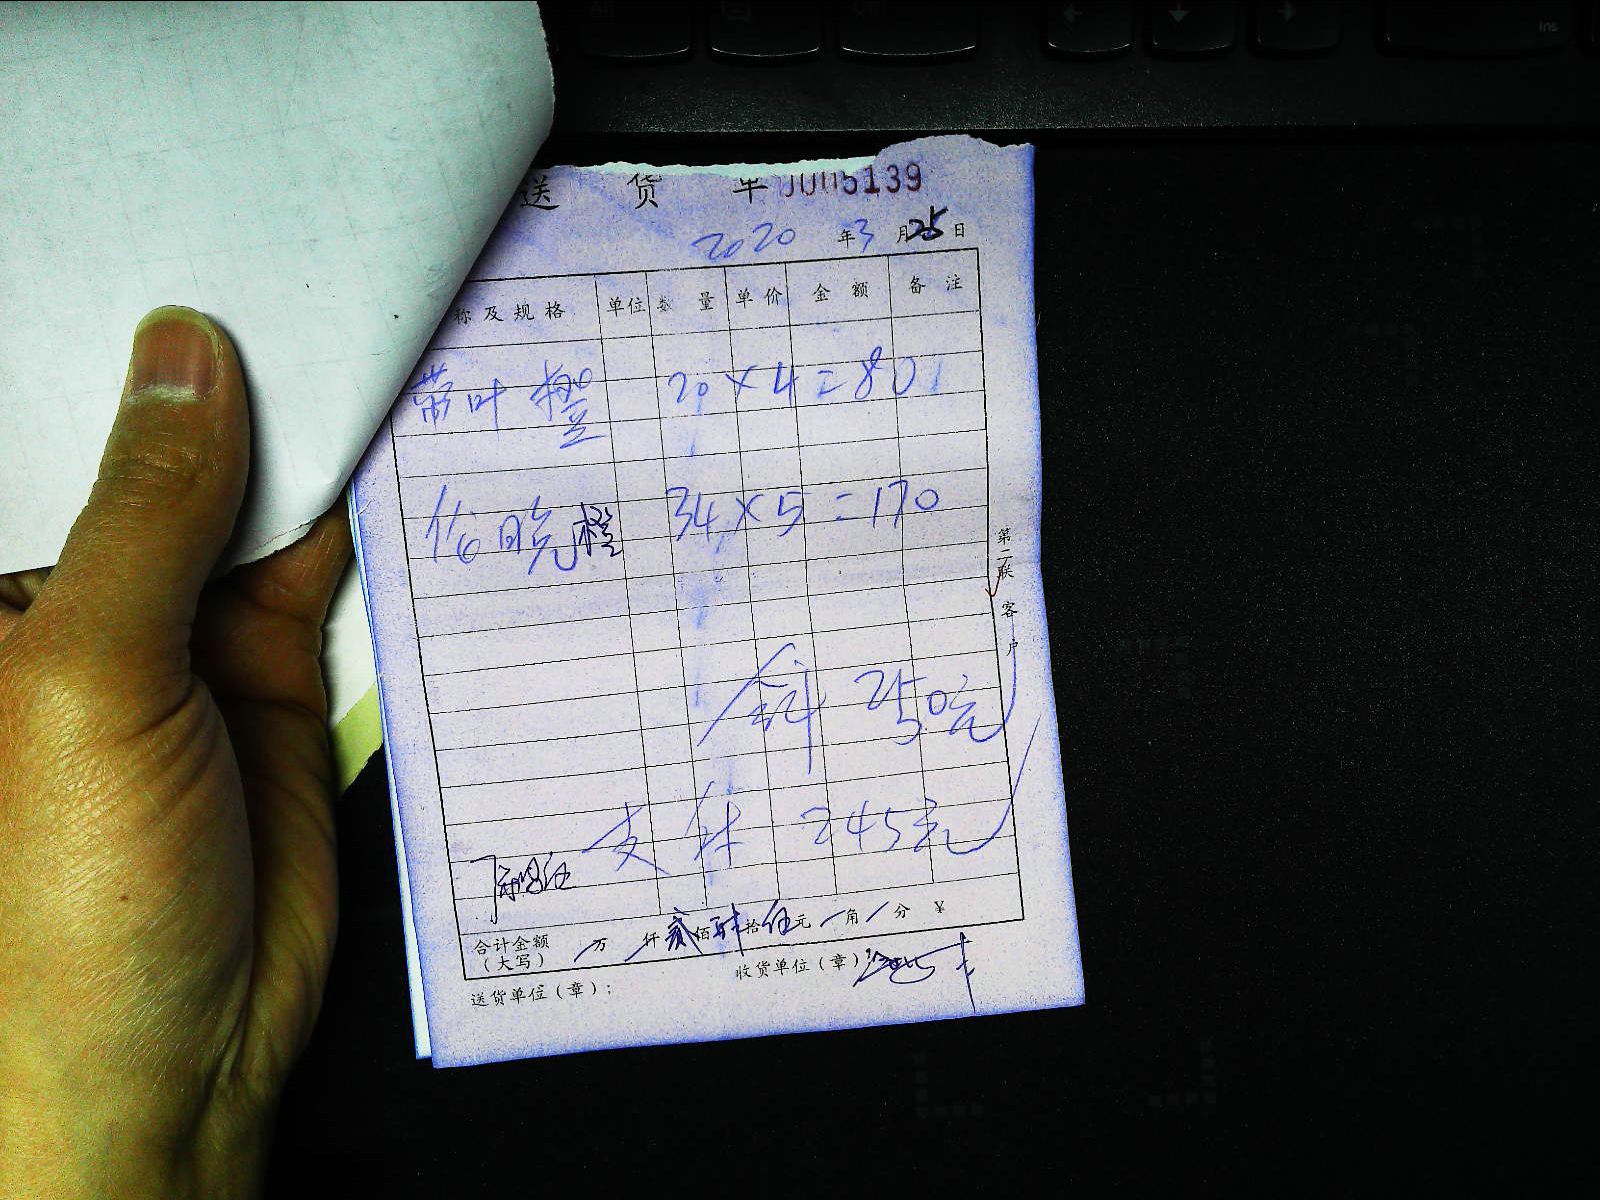 送 货 单 0005139
2020 年 3 月 25 日
称及规格 单位 数 量 单价 金 额 备 注
带叶橙 20×4=80
伦晚橙 34×5=170
合计 250元
支付 245元
合计金额
(大写) 万 仟 贰 佰 肆 拾 伍 元 角 分 ¥
收货单位(章):
送货单位(章):
第二联 客户
Alt
Ctrl
Ins